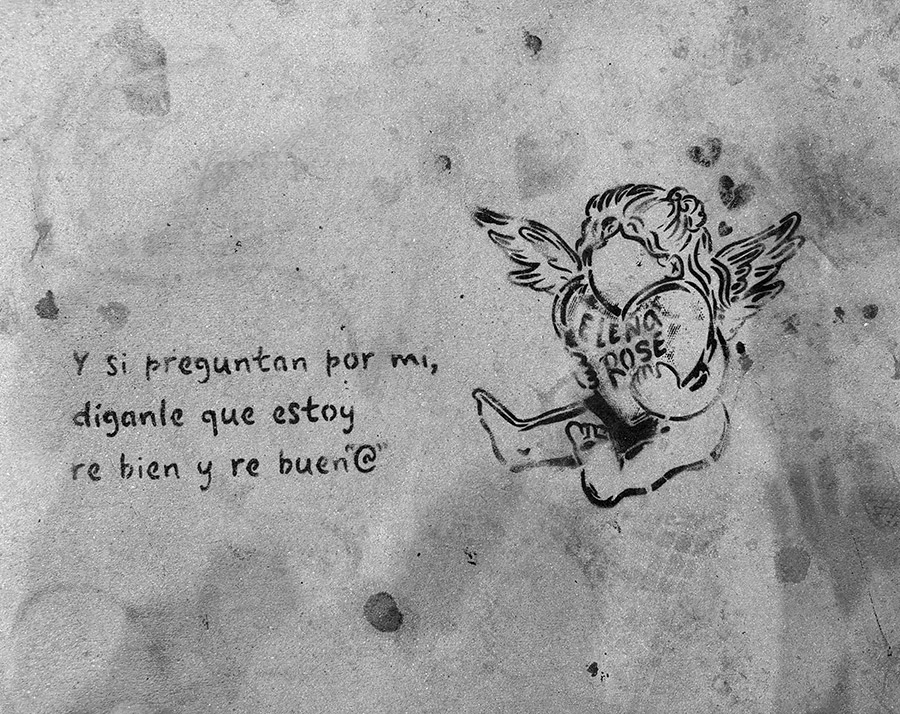 Y si preguntan por mi,
diganle que estoy
re bien y re buen"@"
ELENA
ROSE